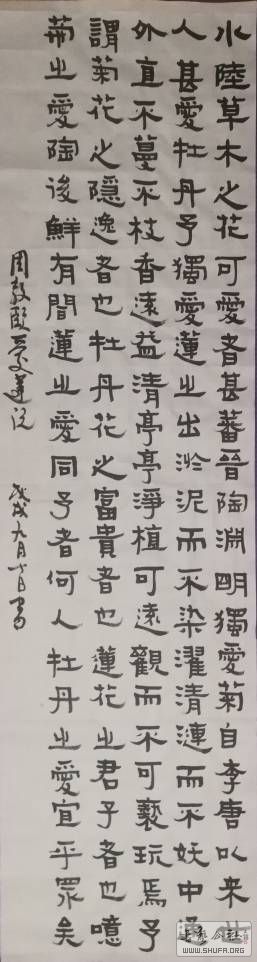 水陸草木之花可愛者甚蕃晉陶淵明獨愛菊自李唐以来世
人甚愛牡丹予獨愛蓮之出淤泥而不染濯清漣而不妖中通
外直不蔓不枝香遠益清亭亭淨植可遠觀而不可褻玩焉予
謂菊花之隱逸者也牡丹花之富貴者也蓮花之君子者也噫
菊之愛陶後鮮有聞蓮之愛同予者何人牡丹之愛宜乎眾矣
周敦頤愛蓮说 戊戌九月十日書
WWW.SHUFA.ORG